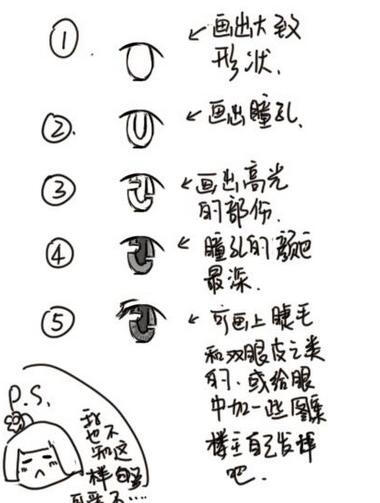 ①
←画出大致
形状.
②.
←画出瞳孔.
③
←画出高光
的部份.
④
←瞳孔的颜色
最深.
⑤
←可画上睫毛
和双眼皮之类
的.或给眼
中加一些图案
楼主自己发挥
吧.
P.S.
我
也不
知这
样够